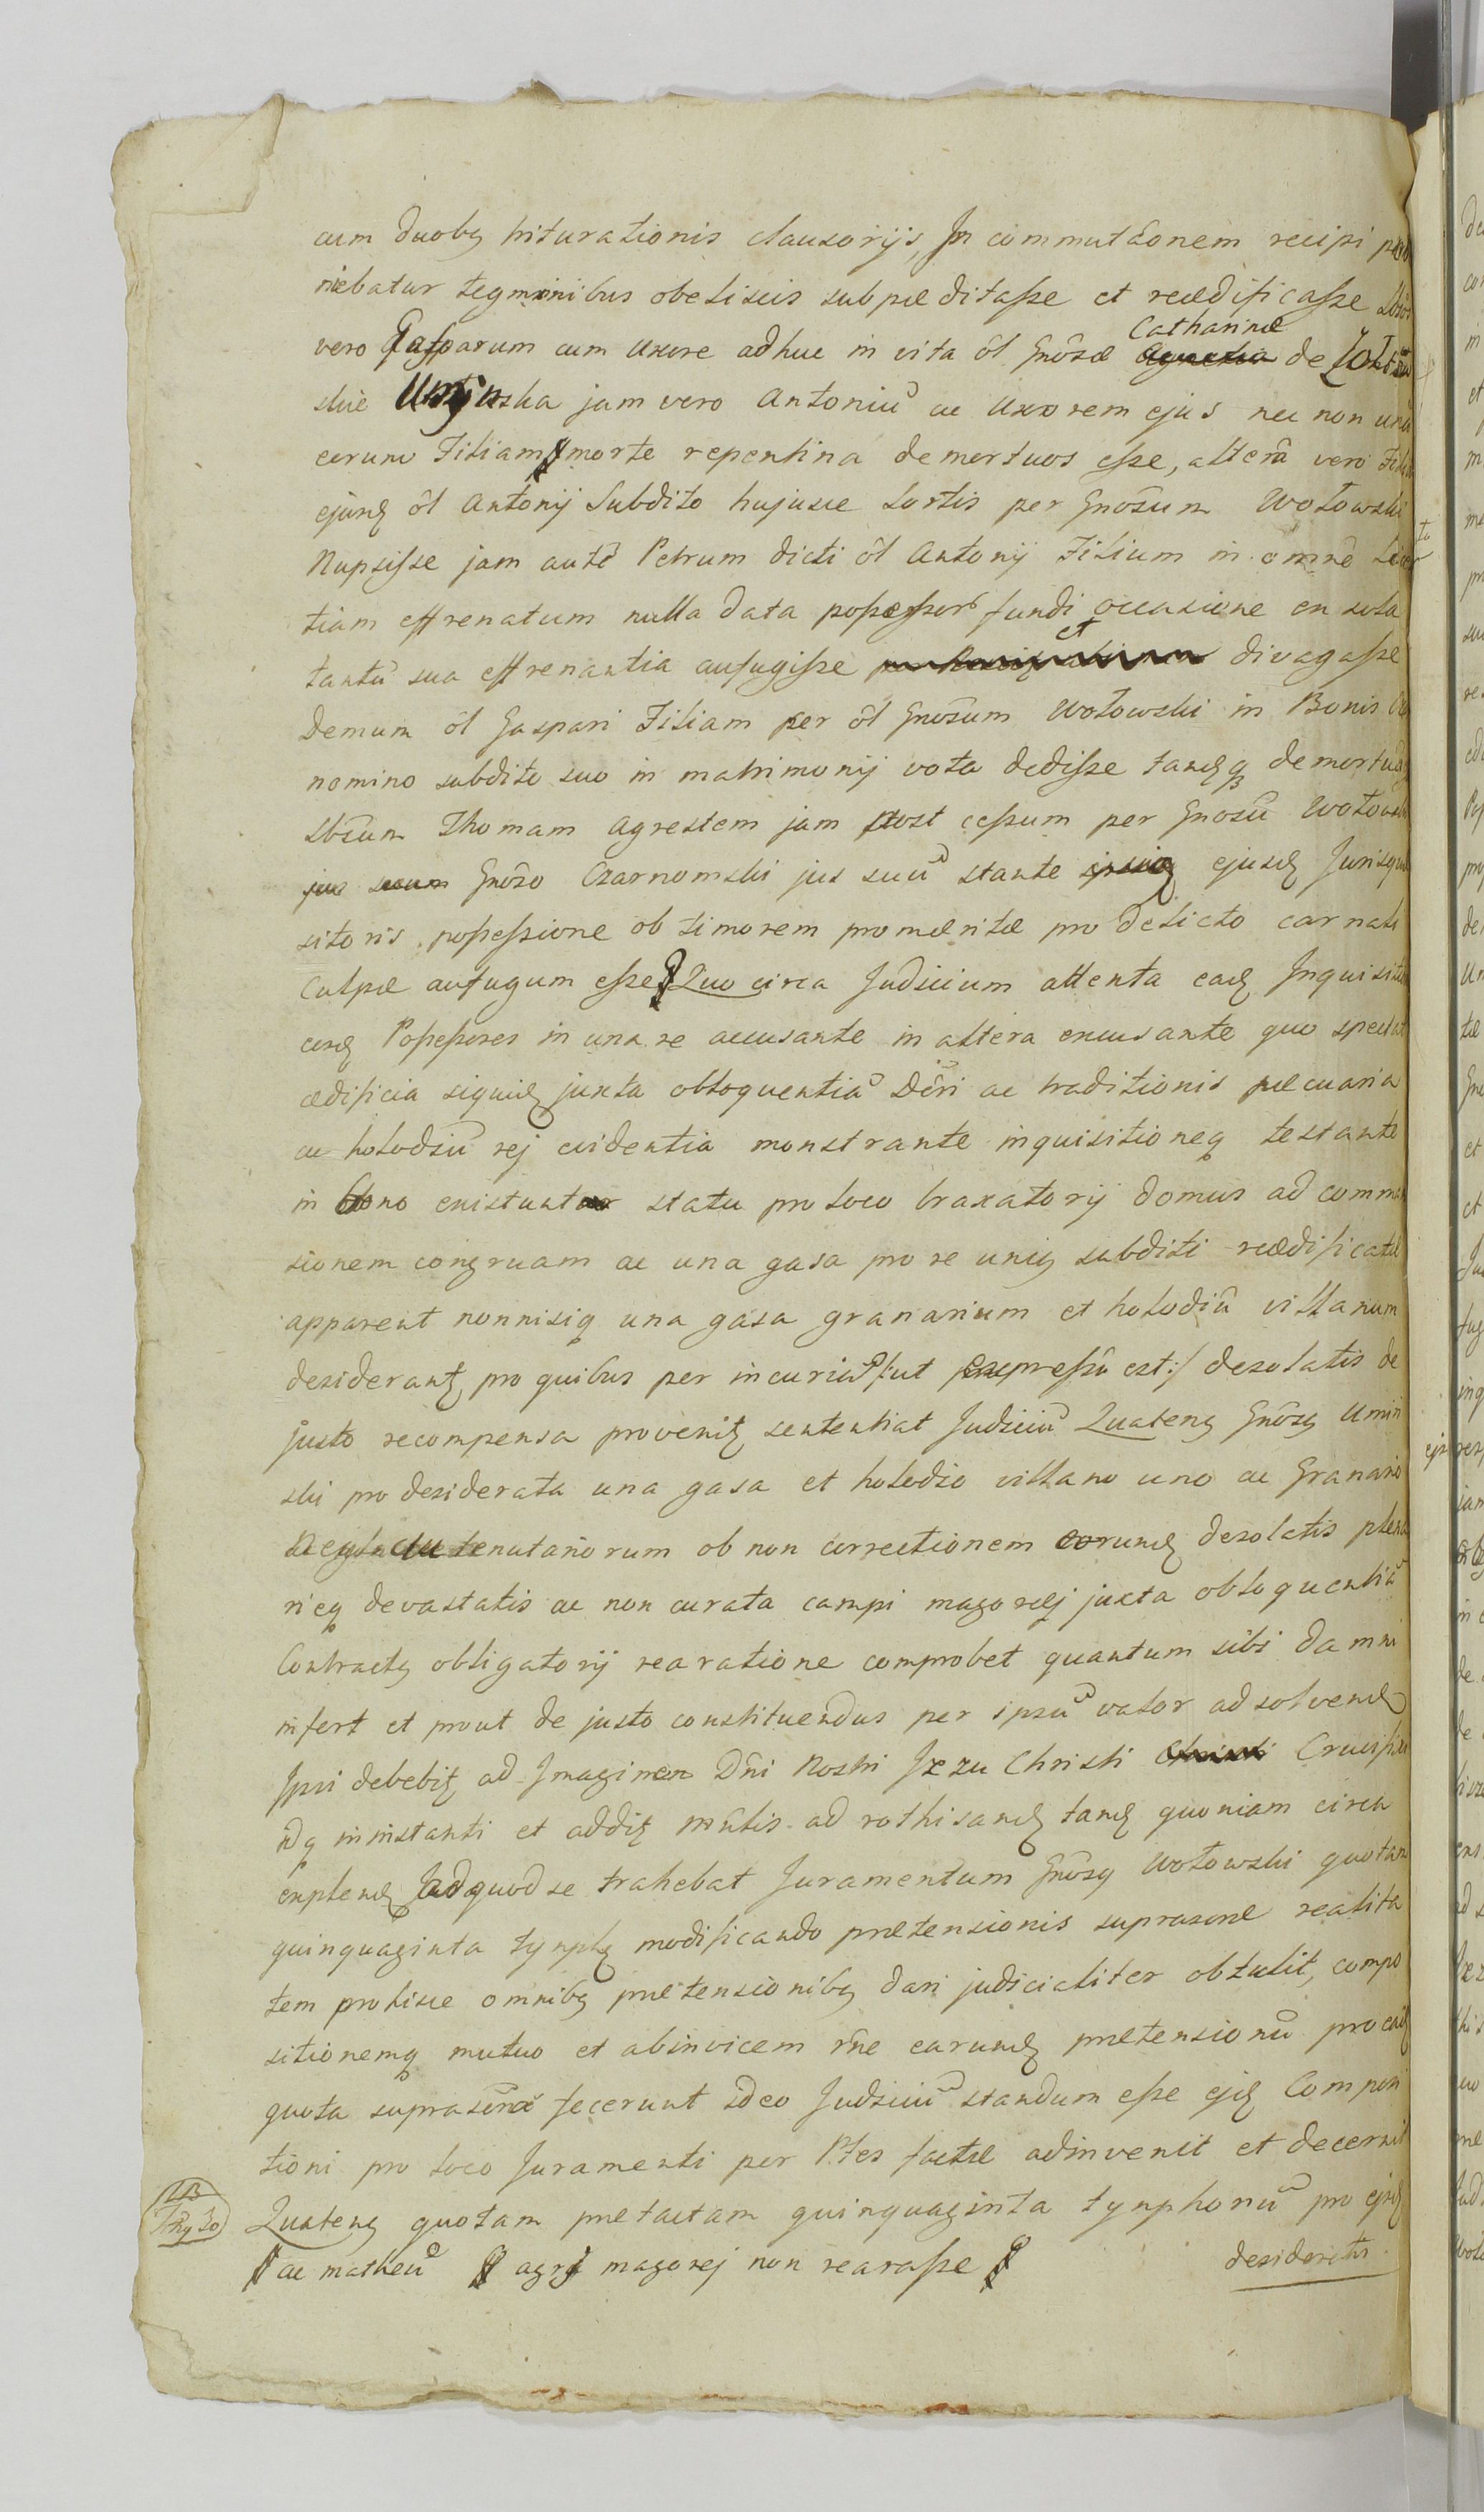 cum duobꝫ triturationis clausorijs, In commutãonem recipi 
niebatur tegminibus obeliscis subpæditaſse et reædificaſse
vero Gasparum cum uxore adhuc in vita ôl Gnôsæ Catharinæ de
skie Uminska jam vero Antoniũ ac Uxorem ejus nec non unã
eorum Filiam morte repentina demortuos eſse, alterã vero
ejusdꝫ ôl Antonij Subdito hujusce Sortis per Gnôsum Wołowski
Nupsiſse jam autẽ Petrum dicti ôl Antonij Filium in omnẽ
tiam effrenatum nulla data poſseſsori fundi occasione ex sola
tantũ sua effrenantia aufugiſse et divagaſse
Demum ôl Gaspari Filiam per ôl Gnôsum Wołowski in Bonis
nomino subdito suo in matrimonij vota dediſse tandꝫq demortuã
Thomam Agrestem jam post ceſsum per Gnosũ Wołowski
Gnôso Czarnomski jus suũ stante ejusdꝫ Jurisqui
sitoris poſseſsione ob timorem promæritæ pro delicto carnali
Culpæ aufugum eſse Quo circa Judicium attenta eadꝫ Inquisitio
Poſseſsores in una re accusante in altera excusante quo spectat
ædificia siquidꝫ juxta obloquentiã Dcri ac traditionis pæcuaria
ac hołodziũ rej evidentia monstrante inquisitioneq testante
in bono existunt statu pro loco braxatorij domus ad comman
sionem congruam ac una gasa pro re unius subditi reædificatæ
apparent nonnisiq una gasa granarium et hołodiũ villanum
desiderantꝫ, pro quibus per incuriã /:ut expreſsũ est:/ desolatis de
justo recompensa provenitꝫ sententiat Judiciũ Quatenꝫ Gnôsꝫ Umin
ski pro desiderata una gasa et hołodzio villano uno ac Granario
neglectu tenutariorum ob non correctionem eorundꝫ desolatis plena
rieq devastatis ac non curata campi magorej juxta obloquentiã
Contractꝫ obligatorij rearatione comprobet quantum sibi damni
infert et prout de justo constituendus per ipsũ valor adsolvendꝫ
Ipsi debebitꝫ ad Imaginem Dñi Nostri Jezu Christi Crucifixi
idq ininstanti et additꝫ mñtis ad rothisandꝫ tandꝫ quoniam circa
explendꝫ ad quod se trahebat Juramentum Gnôsꝫ Wołowski quotam
quinquaginta tynphꝫ modificando prætensionis suprascræ realita
tem prohisce omnibꝫ prætensionibꝫ dari judicialiter obtulit, compo
sitionemq mutuo et abinvicem rñe earundꝫ prætensionũ pro eadꝫ
quota suprascrã fecerunt ideo Judiciũ standum eſse ejdꝫ Composi
tioni pro loco Juramenti per Ptes factæ adinvenit et decernit
Quatenꝫ quotam prætactam quinquaginta tynphonũ pro ejusdꝫ
ac matheũ agri magorej non rearaſse
desideratis